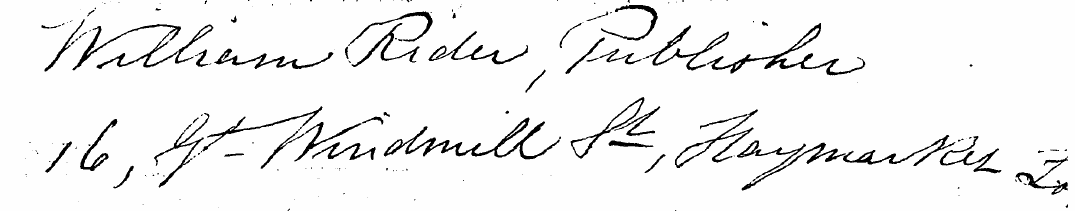 William Rider, Publisher
16, Gt- Windmill St, Haymarket Lo